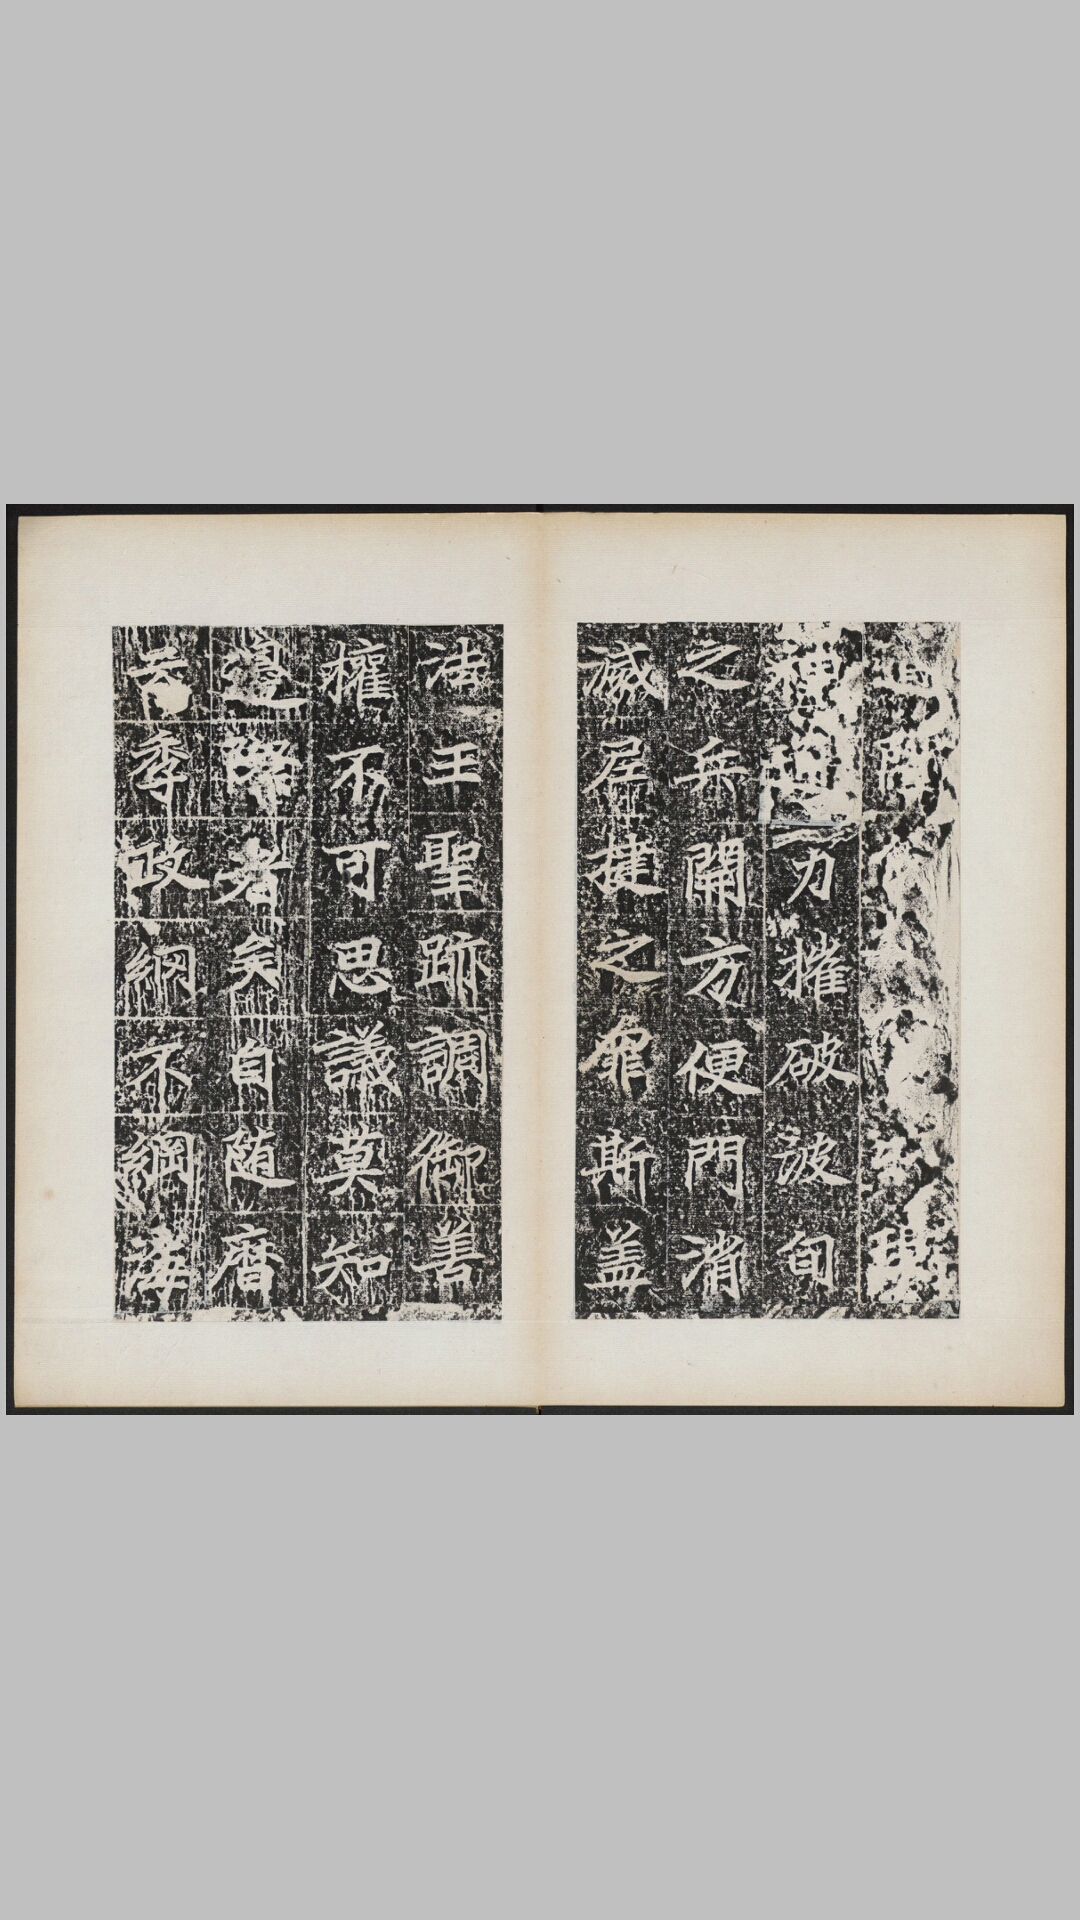 神通力摧破波旬
之兵開方便門消
滅尼揵之斯盖
法王聖跡調御善
權不可思議莫知
邊際者矣自随曆
告季政網不綱海